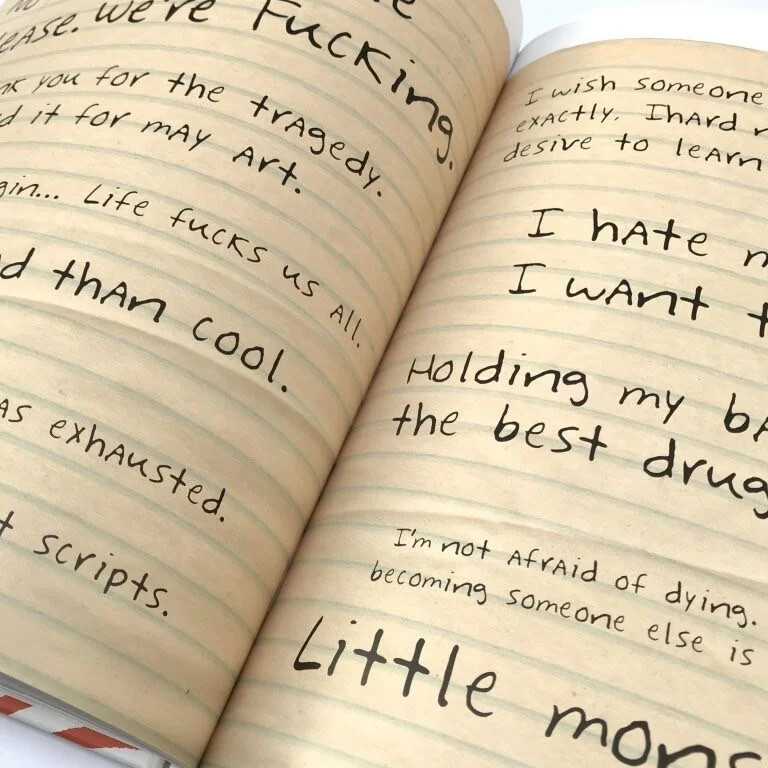 ease. We're Fucking.
you for the tragedy.
it for mAy Art.
Life fucks us all.
than cool.
exhausted.
scripts.
I wish someone
exactly. Ihard
desire to learn
I hate
I want
Holding my
the best drug
I'm not Afraid of dying.
becoming someone else is
Little mons